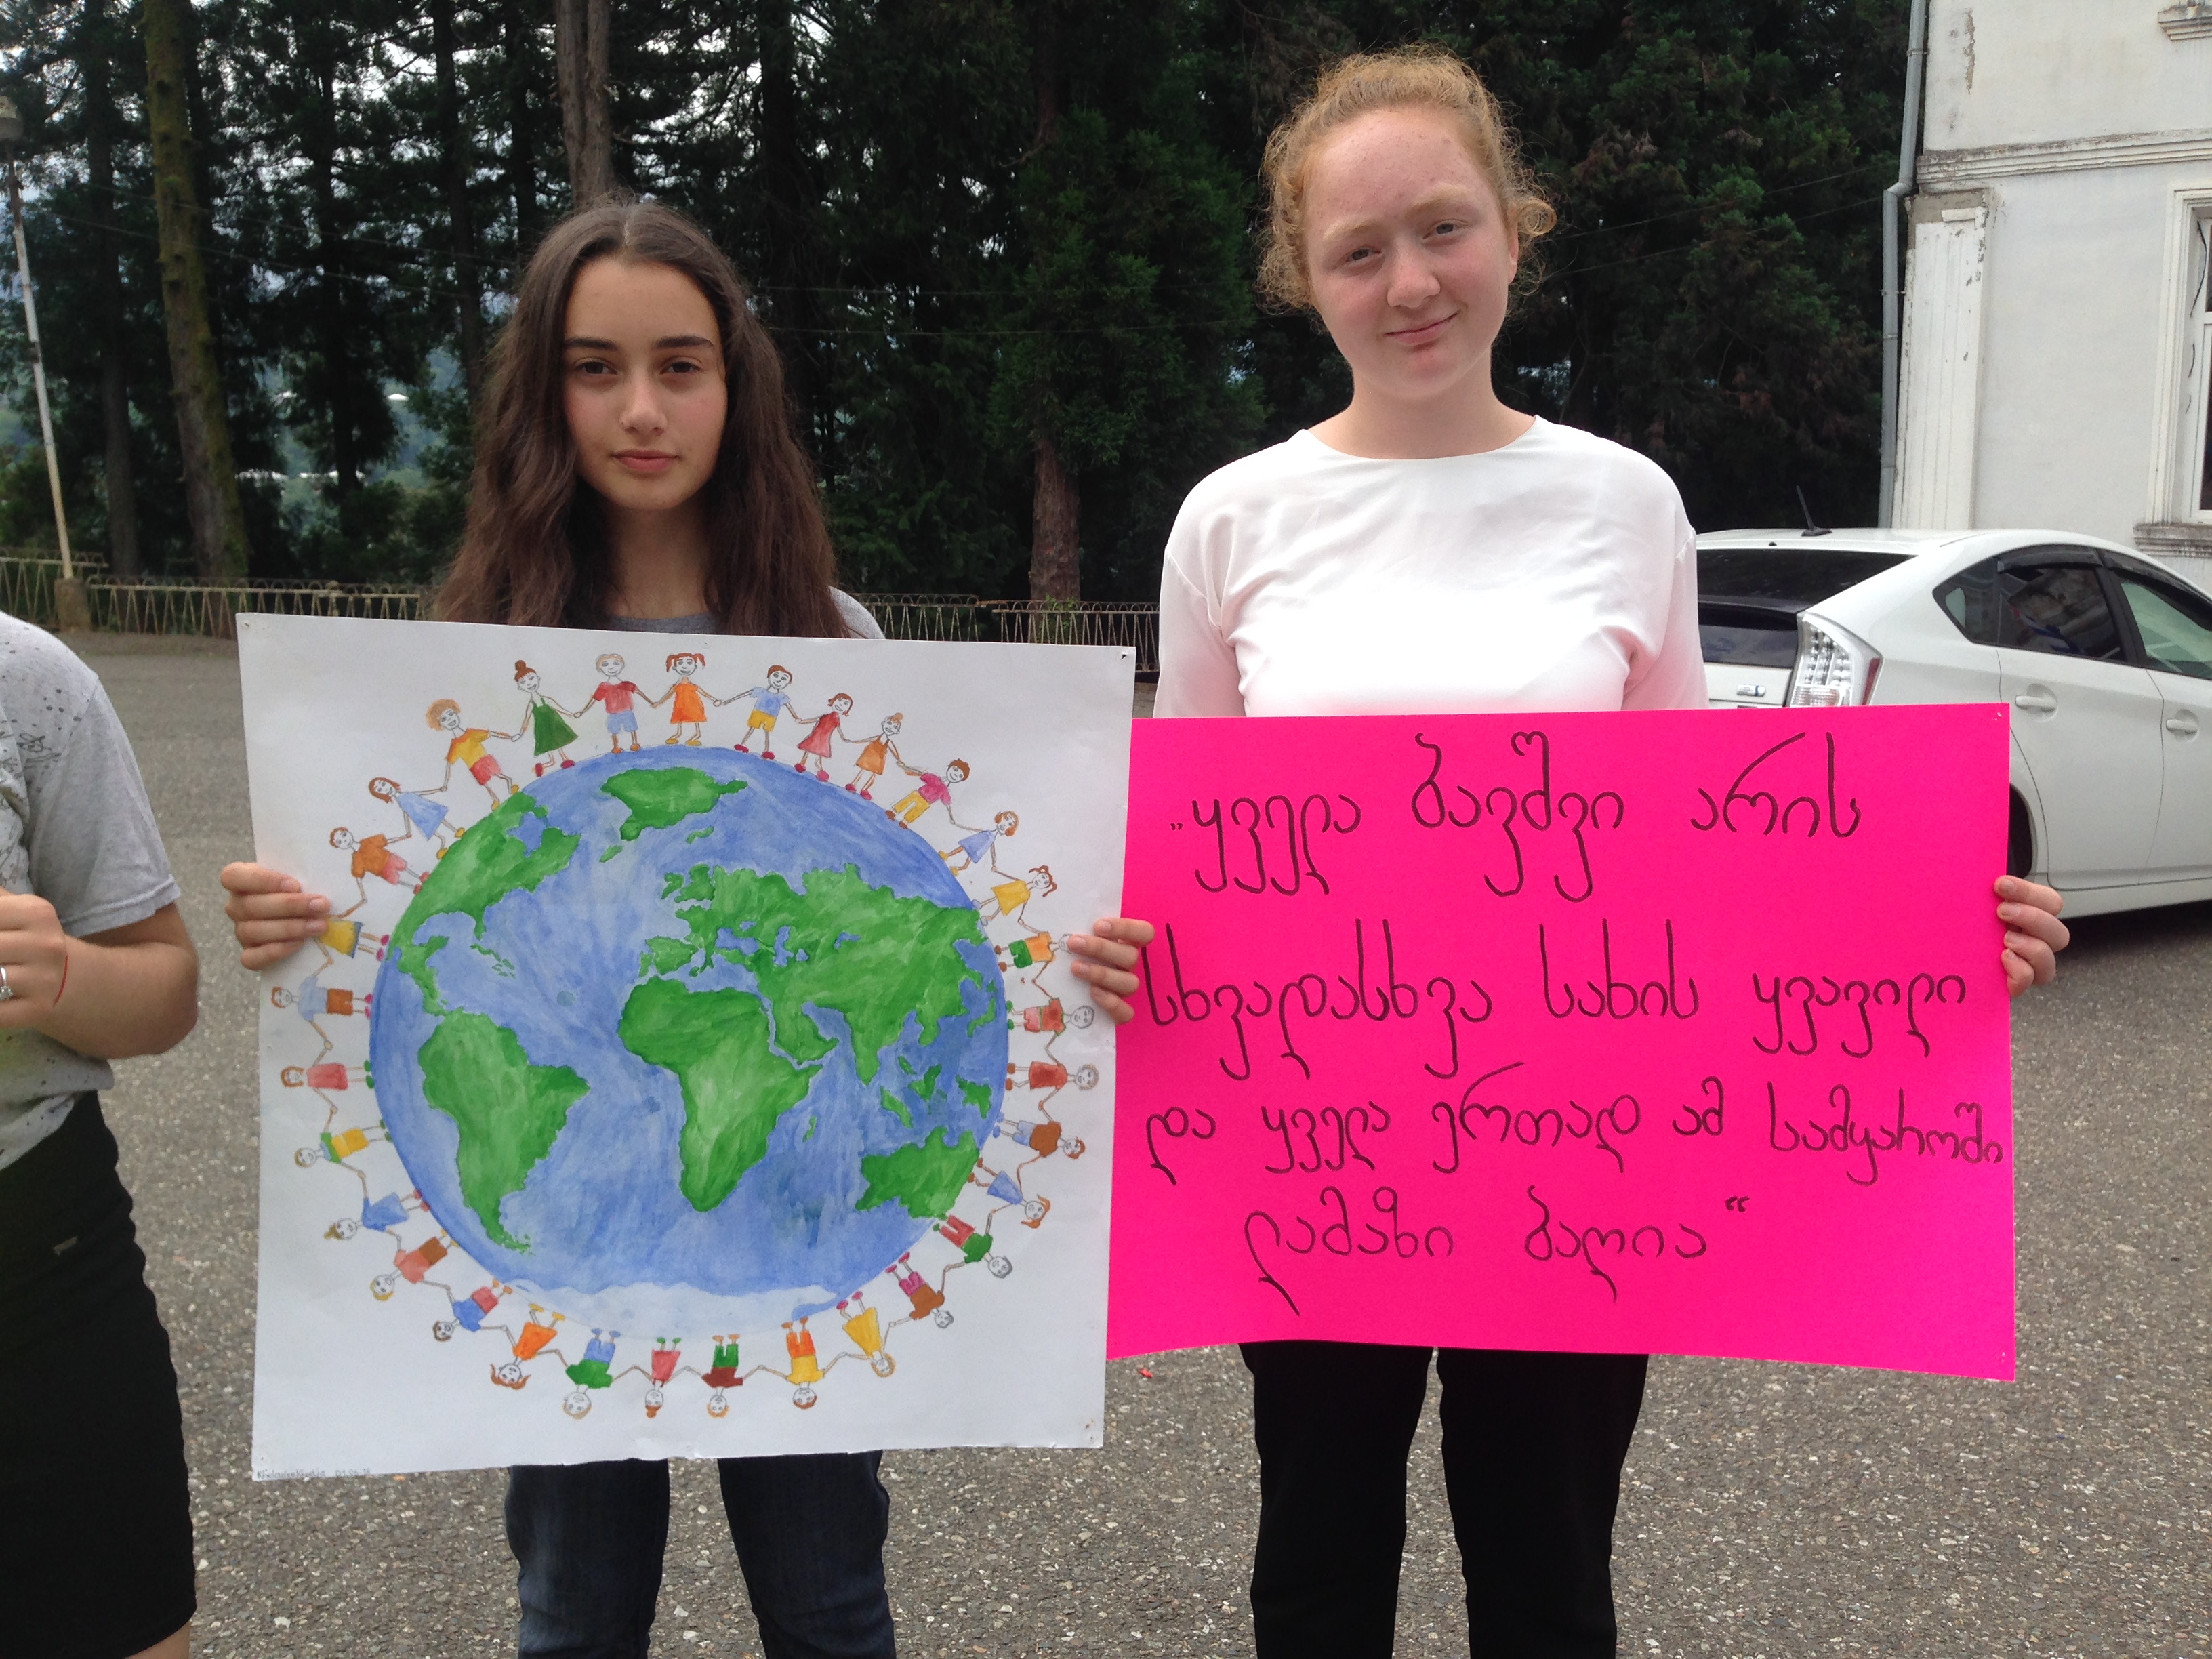 „ყველა ბავშვი არის
სხვადასხვა სახის ყვავილი
და ყველა ერთად ამ სამყაროში
ლამაზი ბაღია“